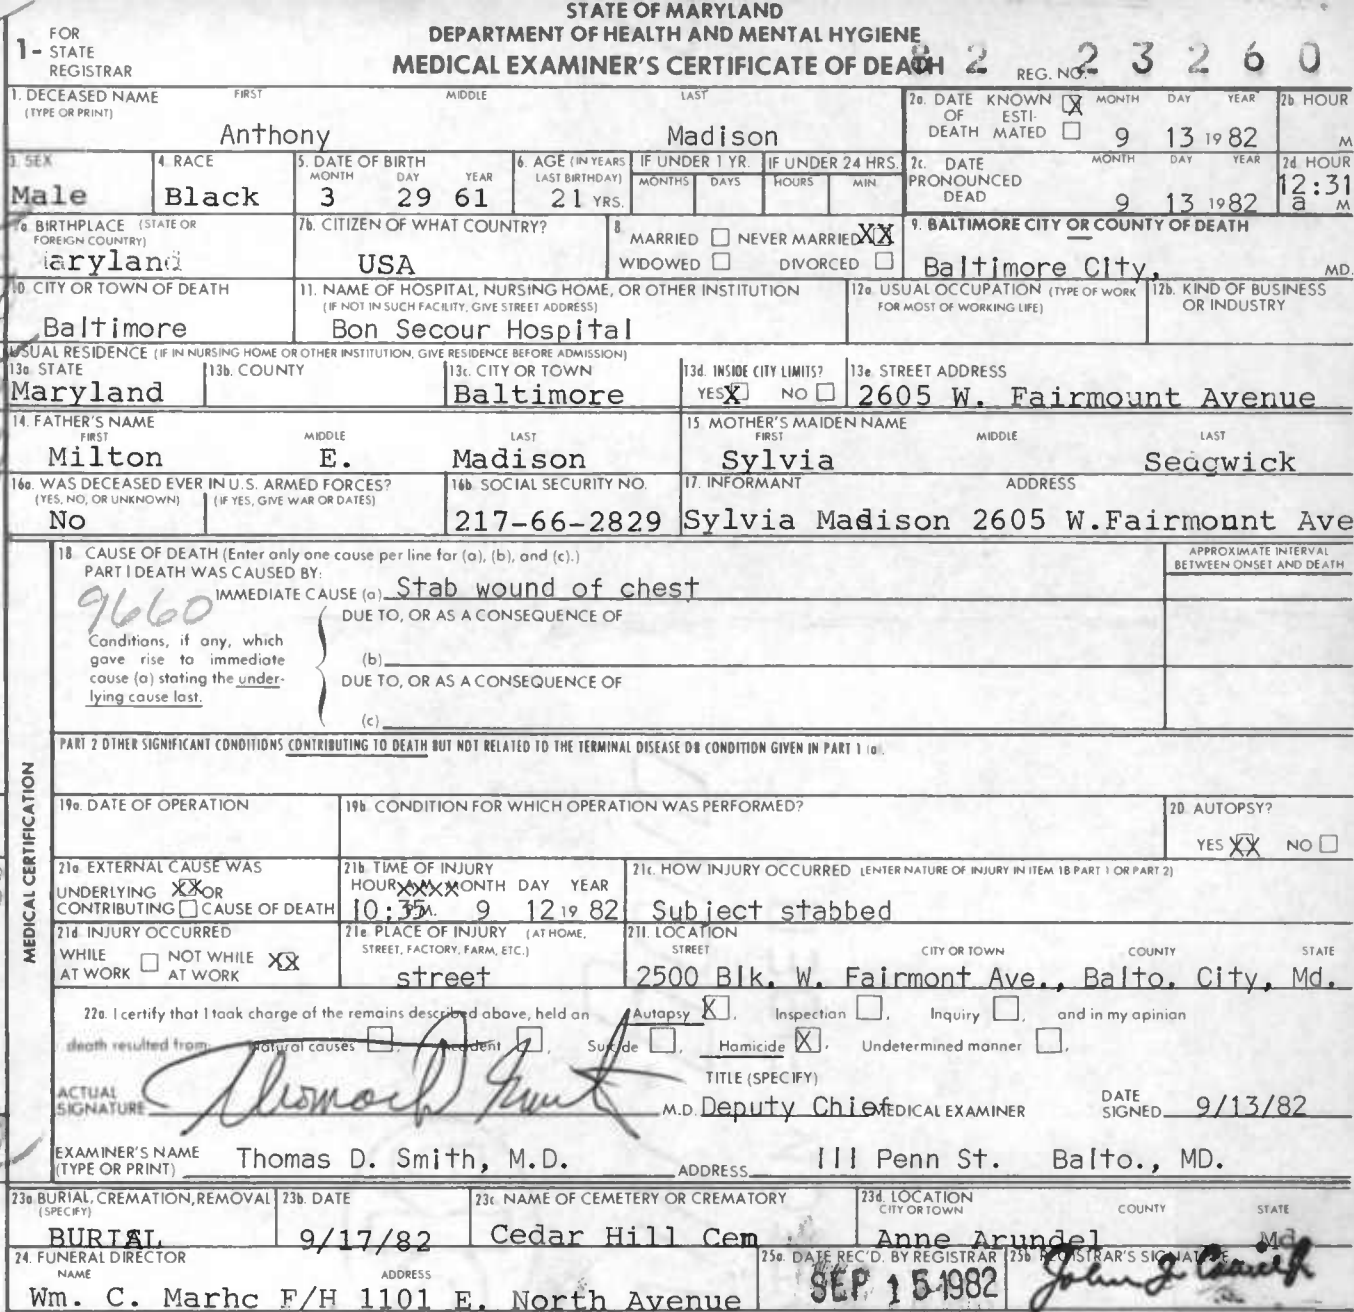 STATE OF MARYLAND
DEPARTMENT OF HEALTH AND MENTAL HYGIENE
MEDICAL EXAMINER'S CERTIFICATE OF DEATH
1- FOR STATE REGISTRAR
REG. NO. 82 23260
1. DECEASED NAME (TYPE OR PRINT) FIRST MIDDLE LAST
Anthony Madison
2a. DATE OF DEATH KNOWN X ESTIMATED MONTH DAY YEAR 2b HOUR
9 13 19 82 M
3. SEX 4. RACE 5. DATE OF BIRTH MONTH DAY YEAR 6. AGE (IN YEARS LAST BIRTHDAY) IF UNDER 1 YR. MONTHS DAYS IF UNDER 24 HRS. HOURS MIN.
Male Black 3 29 61 21 YRS.
2c. DATE PRONOUNCED DEAD MONTH DAY YEAR 2d HOUR
9 13 1982 12:31 a M
7a BIRTHPLACE (STATE OR FOREIGN COUNTRY) 7b. CITIZEN OF WHAT COUNTRY?
aryland USA
8 MARRIED NEVER MARRIED XX
WIDOWED DIVORCED
9. BALTIMORE CITY OR COUNTY OF DEATH
Baltimore City, MD.
10. CITY OR TOWN OF DEATH 11. NAME OF HOSPITAL, NURSING HOME, OR OTHER INSTITUTION (IF NOT IN SUCH FACILITY, GIVE STREET ADDRESS)
Baltimore Bon Secour Hospital
12a. USUAL OCCUPATION (TYPE OF WORK FOR MOST OF WORKING LIFE) 12b. KIND OF BUSINESS OR INDUSTRY
USUAL RESIDENCE (IF IN NURSING HOME OR OTHER INSTITUTION, GIVE RESIDENCE BEFORE ADMISSION)
13a STATE 13b. COUNTY 13c. CITY OR TOWN 13d. INSIDE CITY LIMITS? 13e. STREET ADDRESS
Maryland Baltimore YES X NO 2605 W. Fairmount Avenue
14. FATHER'S NAME FIRST MIDDLE LAST 15. MOTHER'S MAIDEN NAME FIRST MIDDLE LAST
Milton E. Madison Sylvia Sedgwick
16a. WAS DECEASED EVER IN U.S. ARMED FORCES? (YES, NO, OR UNKNOWN) (IF YES, GIVE WAR OR DATES) 16b. SOCIAL SECURITY NO. 17. INFORMANT ADDRESS
No 217-66-2829 Sylvia Madison 2605 W.Fairmount Ave
MEDICAL CERTIFICATION
18. CAUSE OF DEATH (Enter only one cause per line for (a), (b), and (c).)
APPROXIMATE INTERVAL BETWEEN ONSET AND DEATH
PART I DEATH WAS CAUSED BY:
IMMEDIATE CAUSE (a) Stab wound of chest
9660
DUE TO, OR AS A CONSEQUENCE OF
Conditions, if any, which gave rise to immediate cause (a) stating the underlying cause last.
(b)
DUE TO, OR AS A CONSEQUENCE OF
(c)
PART 2 OTHER SIGNIFICANT CONDITIONS CONTRIBUTING TO DEATH BUT NOT RELATED TO THE TERMINAL DISEASE OR CONDITION GIVEN IN PART 1 (a).
19a. DATE OF OPERATION 19b. CONDITION FOR WHICH OPERATION WAS PERFORMED? 20. AUTOPSY?
YES XX NO
21a. EXTERNAL CAUSE WAS UNDERLYING XX OR CONTRIBUTING CAUSE OF DEATH
21b. TIME OF INJURY HOUR MONTH DAY YEAR
10:35 M. 9 12 19 82
21c. HOW INJURY OCCURRED (ENTER NATURE OF INJURY IN ITEM 18 PART 1 OR PART 2)
Subject stabbed
21d INJURY OCCURRED WHILE AT WORK NOT WHILE AT WORK XX
21e. PLACE OF INJURY (AT HOME, STREET, FACTORY, FARM, ETC.)
street
21f. LOCATION STREET CITY OR TOWN COUNTY STATE
2500 Blk. W. Fairmont Ave., Balto. City, Md.
22a. I certify that I took charge of the remains described above, held an Autopsy X, Inspection, Inquiry, and in my opinion
death resulted from: Natural causes, Accident, Suicide, Homicide X, Undetermined manner.
ACTUAL SIGNATURE Thomas D. Smith M.D.
TITLE (SPECIFY) Deputy Chief MEDICAL EXAMINER DATE SIGNED 9/13/82
EXAMINER'S NAME (TYPE OR PRINT) Thomas D. Smith, M.D. ADDRESS 111 Penn St. Balto., MD.
23a BURIAL, CREMATION, REMOVAL (SPECIFY) 23b. DATE 23c. NAME OF CEMETERY OR CREMATORY 23d. LOCATION CITY OR TOWN COUNTY STATE
BURIAL 9/17/82 Cedar Hill Cem Anne Arundel Md
24. FUNERAL DIRECTOR NAME ADDRESS
Wm. C. Marhc F/H 1101 E. North Avenue
25a. DATE REC'D. BY REGISTRAR 25b REGISTRAR'S SIGNATURE
SEP 15 1982
John J.